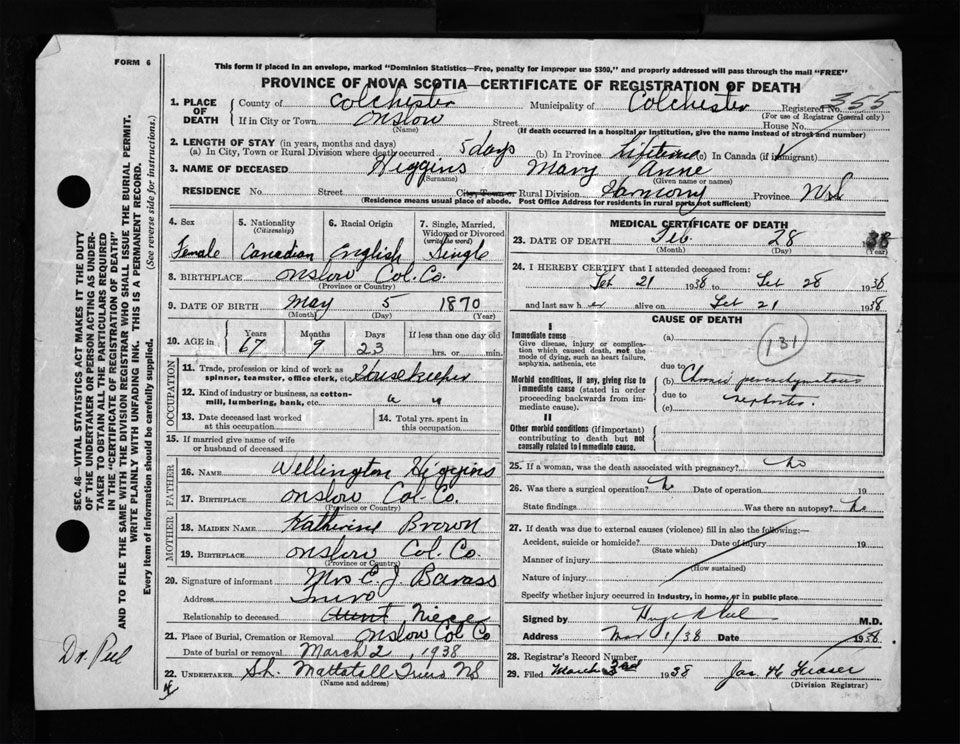 FORM 6
This form if placed in an envelope, marked "Dominion Statistics—Free, penalty for improper use $300," and properly addressed will pass through the mail "FREE"
PROVINCE OF NOVA SCOTIA—CERTIFICATE OF REGISTRATION OF DEATH
1. PLACE OF DEATH { County of Colchester Municipality of Colchester Registered No. 355
(For use of Registrar General only)
If in City or Town Onslow Street House No.
(Name) (If death occurred in a hospital or Institution, give the name instead of street and number)
2. LENGTH OF STAY (in years, months and days)
(a) In City, Town or Rural Division where death occurred 5 days (b) In Province Lifetime (c) In Canada (if immigrant)
3. NAME OF DECEASED Higgins Mary Anne
(Surname) (Given name or names)
RESIDENCE No. Street City, Town or Rural Division Harmony Province N.S.
(Residence means usual place of abode. Post Office Address for residents in rural parts not sufficient)
4. Sex 5. Nationality (Citizenship) 6. Racial Origin 7. Single, Married, Widowed or Divorced (write the word)
Female Canadian English Single
8. BIRTHPLACE Onslow Col. Co.
(Province or Country)
9. DATE OF BIRTH May 5 1870
(Month) (Day) (Year)
10. AGE in { Years Months Days If less than one day old
67 9 23 hrs. or min.
OCCUPATION
11. Trade, profession or kind of work as spinner, teamster, office clerk, etc. Housekeeper
12. Kind of industry or business, as cotton-mill, lumbering, bank, etc. " "
13. Date deceased last worked at this occupation 14. Total yrs. spent in this occupation
15. If married give name of wife or husband of deceased
FATHER
16. NAME Wellington Higgins
17. BIRTHPLACE Onslow Col. Co.
(Province or Country)
MOTHER
18. MAIDEN NAME Katherine Brown
19. BIRTHPLACE Onslow Col. Co.
(Province or Country)
20. Signature of informant Mrs E. J. Barass
Address Truro
Relationship to deceased Aunt Niece
21. Place of Burial, Cremation or Removal Onslow Col Co
Date of burial or removal March 2, 1938
22. UNDERTAKER Mattatall Truro NS
(Name and address)
MEDICAL CERTIFICATE OF DEATH
23. DATE OF DEATH Feb. 28 38
(Month) (Day) (Year)
24. I HEREBY CERTIFY that I attended deceased from:
Feb 21 1938 to Feb 28 1938
and last saw her alive on Feb 21 1938
CAUSE OF DEATH
I
Immediate cause
Give disease, injury or complication which caused death, not the mode of dying, such as heart failure, asphyxia, asthenia, etc
(a) 131
due to
Morbid conditions, if any, giving rise to immediate cause (stated in order proceeding backwards from immediate cause).
(b) Chronic parenchymatous
due to nephritis.
(c)
II
Other morbid conditions (if important) contributing to death but not causally related to immediate cause.
25. If a woman, was the death associated with pregnancy? No
26. Was there a surgical operation? No Date of operation 19
State findings Was there an autopsy? No
27. If death was due to external causes (violence) fill in also the following:—
Accident, suicide or homicide? Date of injury 19
(State which)
Manner of injury
(How sustained)
Nature of injury
Specify whether injury occurred in industry, in home, or in public place
Signed by M.D.
Address Mar 1/38 Date 1938
28. Registrar's Record Number
29. Filed March 3rd 1938 Jas H Fraser
(Division Registrar)
SEC. 46—VITAL STATISTICS ACT MAKES IT THE DUTY
OF THE UNDERTAKER OR PERSON ACTING AS UNDER-
TAKER TO OBTAIN ALL THE PARTICULARS REQUIRED
IN THE "CERTIFICATE OF REGISTRATION OF DEATH"
AND TO FILE THE SAME WITH THE DIVISION REGISTRAR WHO SHALL ISSUE THE BURIAL PERMIT.
WRITE PLAINLY WITH UNFADING INK. THIS IS A PERMANENT RECORD.
Every item of information should be carefully supplied. (See reverse side for instructions.)
Dr. Peel